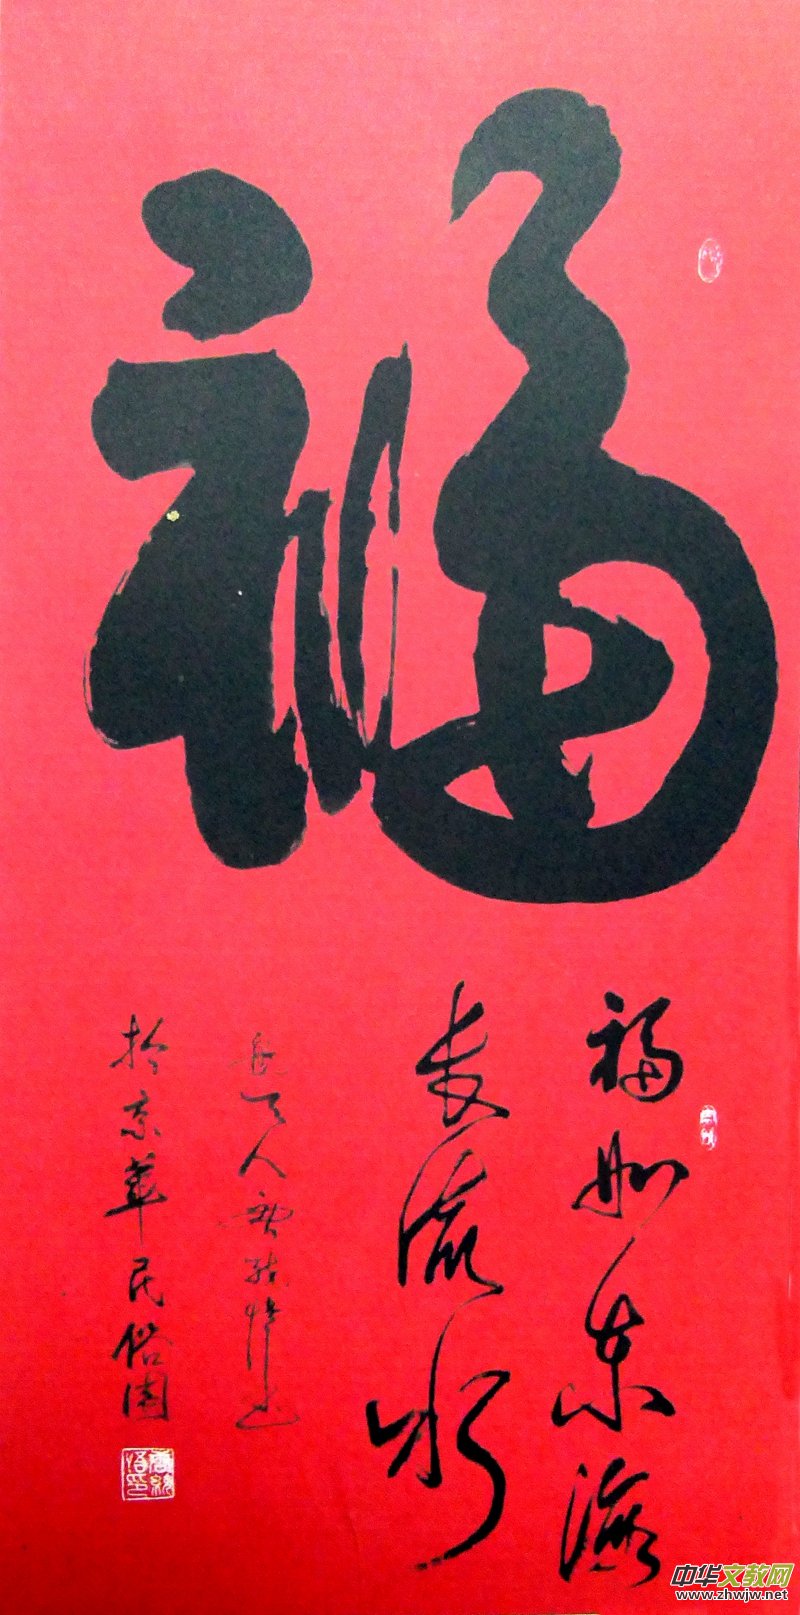 福
福如东海
长流水
于京华民俗园
中华文教网
www.zhwjw.net